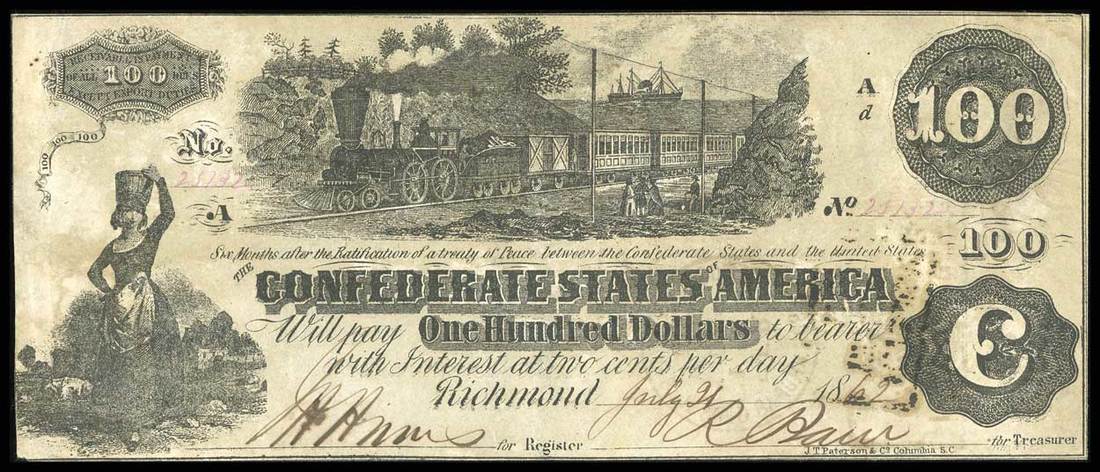 RECEIVABLE IN PAYMENT
OF ALL 100 DUES
EXCEPT EXPORT DUTIES
100 100 100
No.
A
A
d
100
No
100
Six Months after the Ratification of a treaty of Peace between the Confederate States and the United States
THE
CONFEDERATE STATES OF AMERICA
Will pay One Hundred Dollars to bearer
with Interest at two cents per day
Richmond July 21 1862
C
for Register
for Treasurer
J.T. Paterson & Co Columbia S.C.